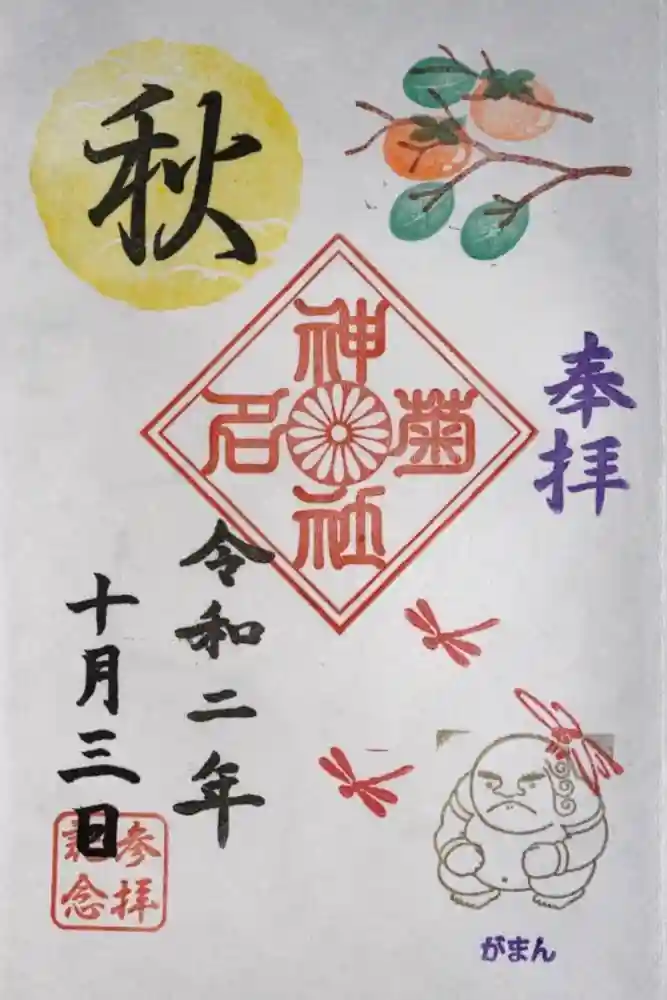 奉拝
秋
菊名神社
令和二年
十月三日
参拝
記念
がまん